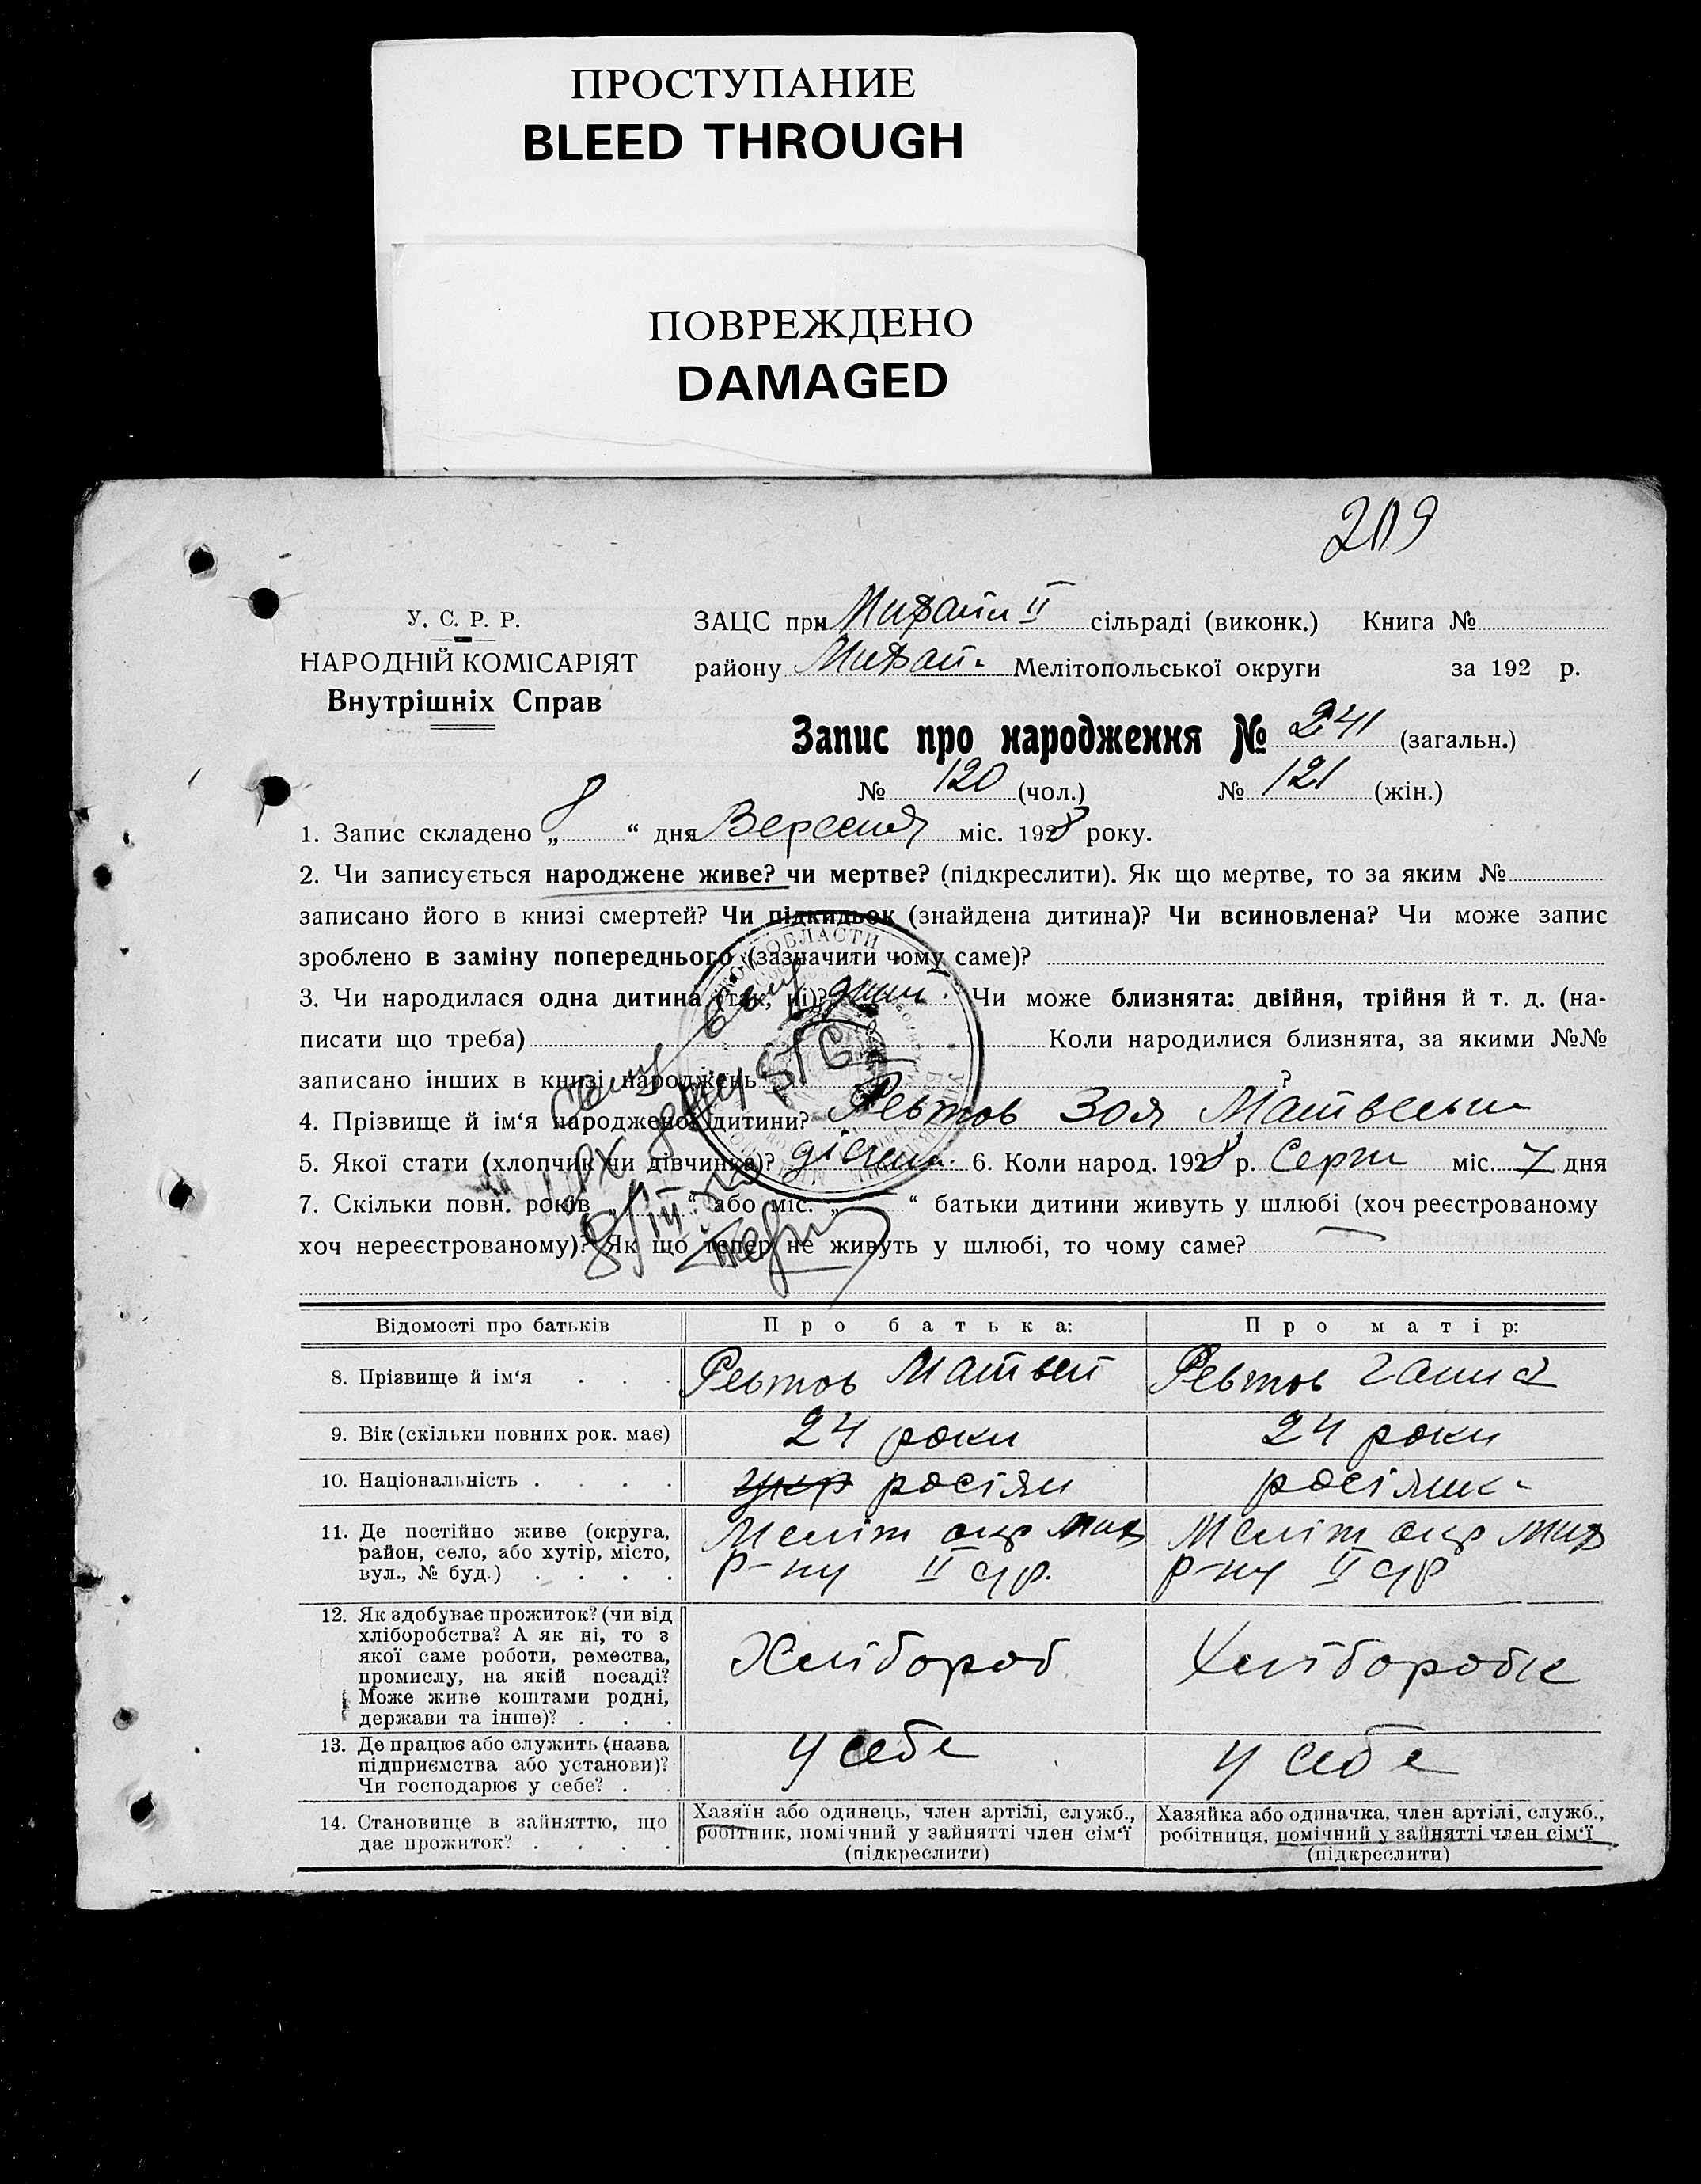 ПРОСТУПАНИЕ
BLEED THROUGH
ПОВРЕЖДЕНО
DAMAGED
209
У. С. Р. Р.
НАРОДНІЙ КОМІСАРІЯТ
Внутрішніх Справ
ЗАЦС при II сільраді (виконк.) Книга №
району Мелітопольської округи за 192 р.
Запис про народження № 241 (загальн.)
№ 120 (чол.) № 121 (жін.)
1. Запис складено „ 8 “ дня Вересня міс. 1928 року.
2. Чи записується народжене живе? чи мертве? (підкреслити). Як що мертве, то за яким №
записано його в книзі смертей? Чи підкидьок (знайдена дитина)? Чи всиновлена? Чи може запис
зроблено в заміну попереднього (зазначити чому саме)?
3. Чи народилася одна дитина (так, ні)? Чи може близнята: двійня, трійня й т. д. (на-
писати що треба) Коли народилися близнята, за якими №№
записано інших в книзі народжень ?
4. Прізвище й ім‘я народженої дитини? Зоя
5. Якої стати (хлопчик чи дівчинка)? 6. Коли народ. 1928 р. Серпн міс. 7 дня
7. Скільки повн. років „ “ або міс. „ “ батьки дитини живуть у шлюбі (хоч реєстрованому
хоч нереєстрованому)? Як що тепер не живуть у шлюбі, то чому саме?
8/III
Відомості про батьків Про батька: Про матір:
8. Прізвище й ім‘я Матвей Ганна
9. Вік (скільки повних рок. має) 24 роки 24 роки
10. Національність укр росіян росіянк
11. Де постійно живе (округа, район, село, або хутір, місто, вул., № буд.) Меліт окр Мих Меліт окр Мих
р-ну II с/р. р-ну II с/р
12. Як здобуває прожиток? (чи від хліборобства? А як ні, то з якої саме роботи, ремества, промислу, на якій посаді? Може живе коштами родні, держави та інше)? Хлібороб Хліборобк
13. Де працює або служить (назва підприємства або установи)? Чи господарює у себе? у себе у себе
14. Становище в зайняттю, що дає прожиток? Хазяїн або одинець, член артілі, служб., робітник, помічний у зайнятті член сім‘ї (підкреслити) Хазяйка або одиначка, член артілі, служб., робітниця, помічний у зайнятті член сім‘ї (підкреслити)